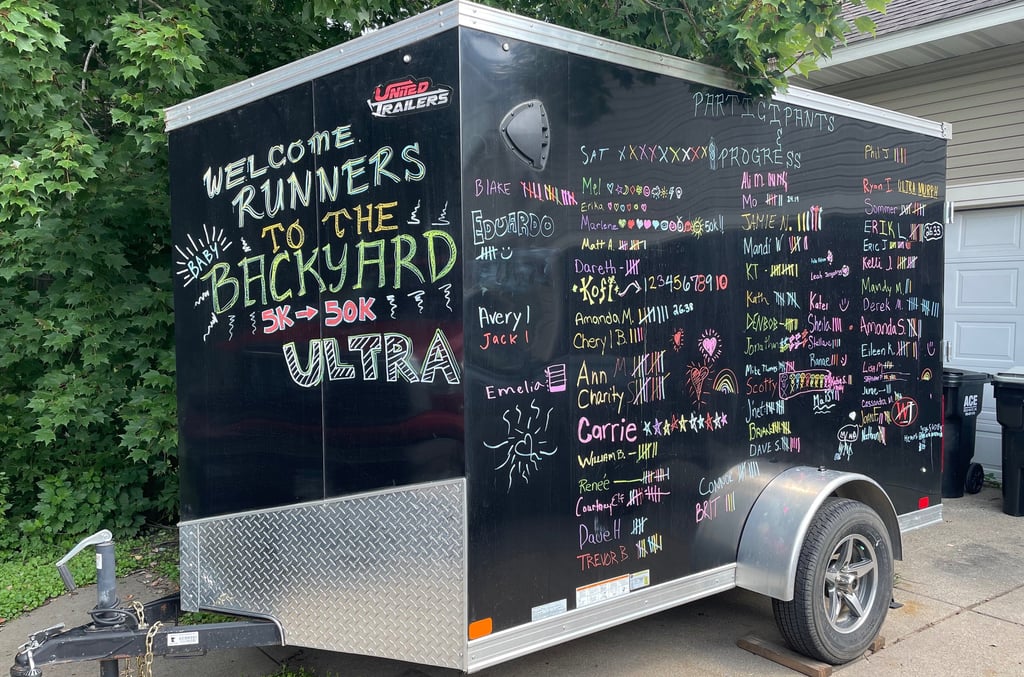 UNITED TRAILERS
WELCOME
RUNNERS
TO THE
BABY
BACKYARD
5K → 50K
ULTRA
PARTICIPANTS
&
PROGRESS
SAT XXXXXXXX
BLAKE
EDUARDO
Avery 1
Jack 1
Emelia
Mel
Erika
Marlene 50k!!
Matt A.
Dareth
Kofi 12345678910
Amanda M.
Cheryl B.
Ann M
Charity
Carrie
WILLIAM B.
Reneé
Courtney
Dave H
TREVOR B
CONNOR
BRIT
Ali M.
Mo
JAMIE N.
Mandi W
KT
Kath
DENBOB
Jonathan
Mike Thomas
Scotty
Jnet
Brian
DAVE S.
Leah
Katel
Sheila
Ranae
Phil J
Ryan I ULTRA MURPH
Sommer
ERIK L
Eric J
Kelli J.
Mandy M
Derek M.
Amanda S.
Eileen K.
Lisa M
June
Cassandra
Nathan
ACE